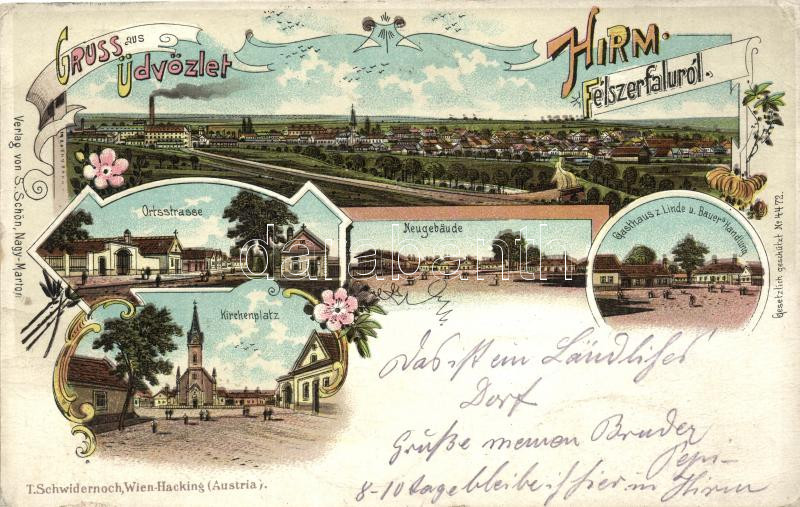 Gruss aus
Üdvözlet
Hirm.
Félszerfaluról.
Verlag von S. Schön, Nagy-Marton
Ortsstrasse
Neugebäude
Gasthaus z. Linde u. Bauer's Handlung
Gesetzlich geschützt № 4472.
darabanth
Kirchenplatz
Das ist ein Ländliches
Dorf
Grüße meinen Bruder
Pepi-
8-10 tage bleibe ich hier in Hirm
T. Schwidernoch, Wien-Hacking (Austria).